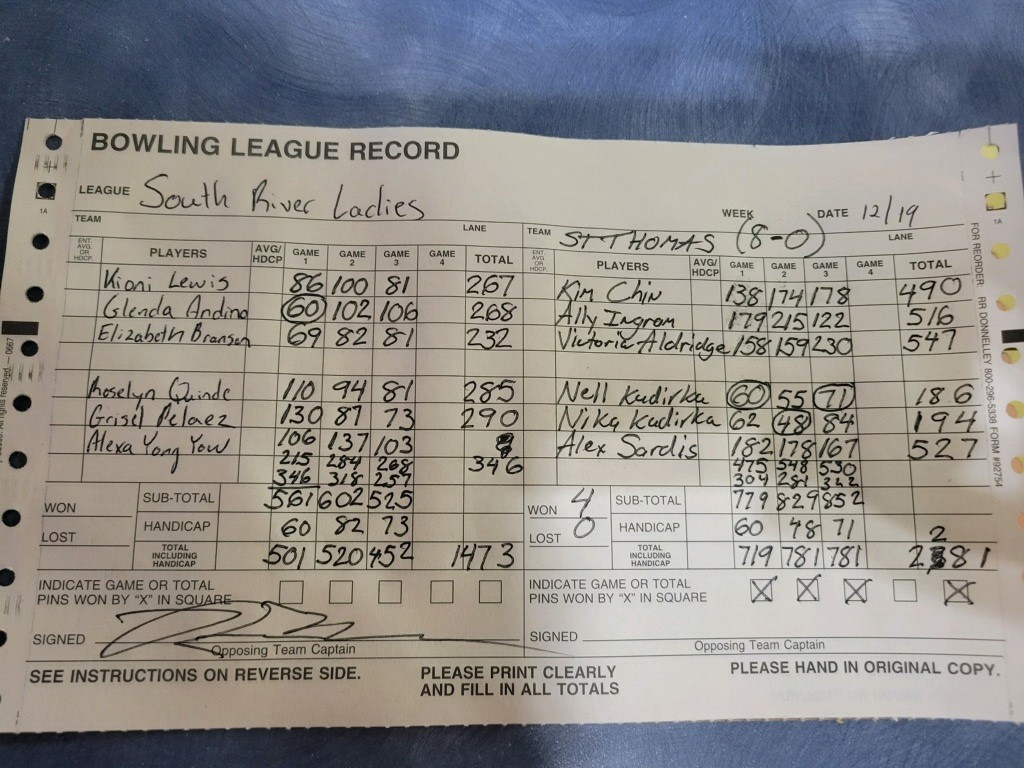 BOWLING LEAGUE RECORD
LEAGUE South River Ladies
WEEK DATE 12/19
TEAM LANE TEAM ST THOMAS (8-0) LANE
ENT. AVG. OR HDCP. PLAYERS AVG/HDCP GAME 1 GAME 2 GAME 3 GAME 4 TOTAL ENT. AVG. OR HDCP. PLAYERS AVG/HDCP GAME 1 GAME 2 GAME 3 GAME 4 TOTAL
Kioni Lewis 86 100 81 267 Kim Chin 138 174 178 490
Glenda Andino 60 102 106 268 Ally Ingram 179 215 122 516
Elizabeth Branson 69 82 81 232 Victoria Aldridge 158 159 230 547
Roselyn Quinde 110 94 81 285 Nell Kudirka 60 55 71 186
Grisel Pelaez 130 87 73 290 Nika Kudirka 62 48 84 194
Alexa Yong Yow 106 137 103 346 Alex Sardis 182 178 167 527
215 284 268 475 548 530
346 318 257 304 281 322
WON SUB-TOTAL 561 602 525 WON 4 SUB-TOTAL 779 829 852
LOST HANDICAP 60 82 73 LOST 0 HANDICAP 60 48 71
TOTAL INCLUDING HANDICAP 501 520 452 1473 TOTAL INCLUDING HANDICAP 719 781 781 2281
INDICATE GAME OR TOTAL PINS WON BY "X" IN SQUARE INDICATE GAME OR TOTAL PINS WON BY "X" IN SQUARE X X X X
SIGNED SIGNED
Opposing Team Captain Opposing Team Captain
SEE INSTRUCTIONS ON REVERSE SIDE. PLEASE PRINT CLEARLY AND FILL IN ALL TOTALS PLEASE HAND IN ORIGINAL COPY.
FOR REORDER: RR DONNELLEY 800-296-5338 FORM #92754
1A
1A